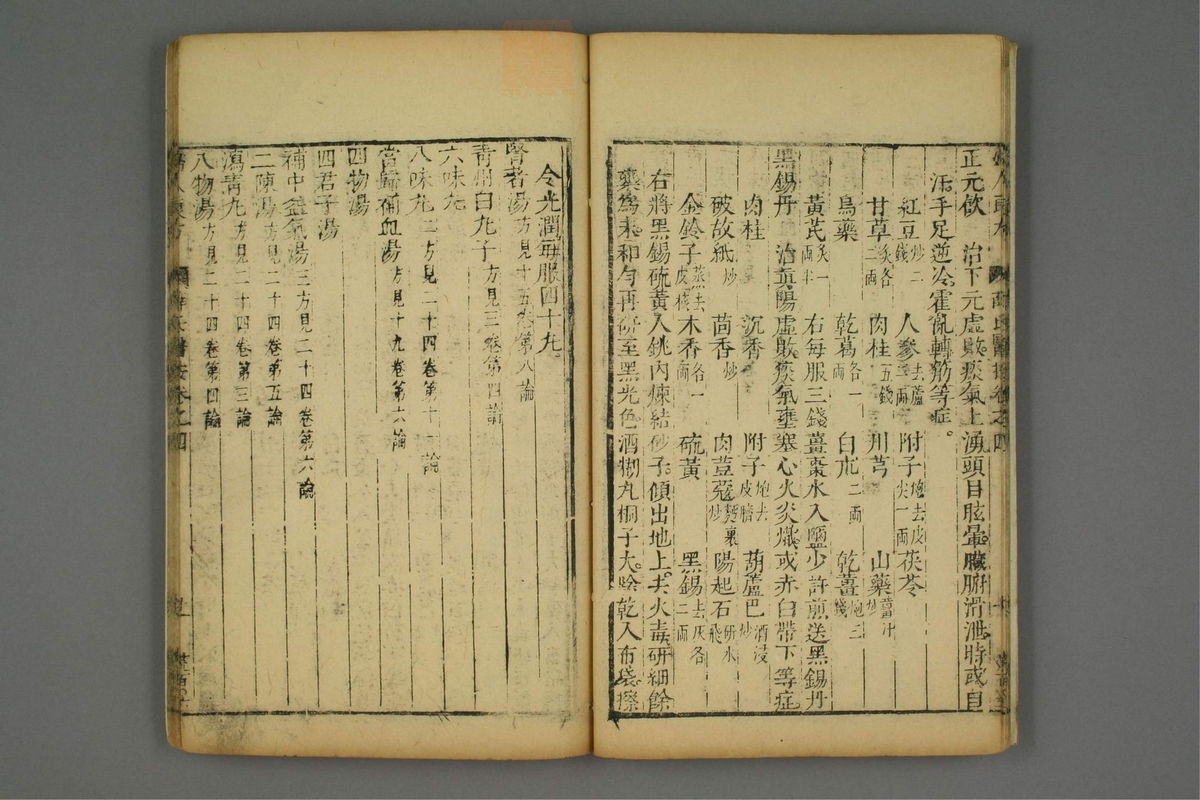 正元飲 治下元虛敗痰氣上湧頭目眩暈臟腑滑泄時或自
汗手足逆冷霍亂轉筋等症。
紅豆炒二錢 人參去蘆二兩 附子炮去皮尖一兩 茯苓
甘草炙各二兩 肉桂五錢 川芎 山藥薑汁炒
烏藥 乾葛各一兩 白朮二兩 乾薑炮三錢
黃芪炙一兩半 右每服三錢薑棗水入鹽少許煎送黑錫丹
黑錫丹 治眞陽虛敗痰氣壅塞心火炎熾或赤白帶下等症
肉桂 沉香 附子炮去皮臍 葫蘆巴酒浸炒
破故紙炒 茴香炒 肉荳蔻麪裹炒 陽起石研水飛
金鈴子蒸去皮核 木香各一兩 硫黃 黑錫去灰各二兩
右將黑錫硫黃入銚內煉結砂子傾出地上去火毒研細餘
藥爲末和勻再研至黑光色酒糊丸桐子大陰乾入布袋擦
令光潤每服四十丸。
腎著湯方見十五卷第八論
靑州白丸子方見三卷第四論
六味丸
八味丸二方見二十四卷第十一論
當歸補血湯方見十九卷第六論
四物湯
四君子湯
補中益氣湯三方見二十四卷第六論
二陳湯方見二十四卷第五論
瀉靑丸方見二十四卷第三論
八物湯方見二十四卷第四論